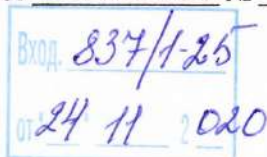 Вход. 837/1-25
от 24 11 2020